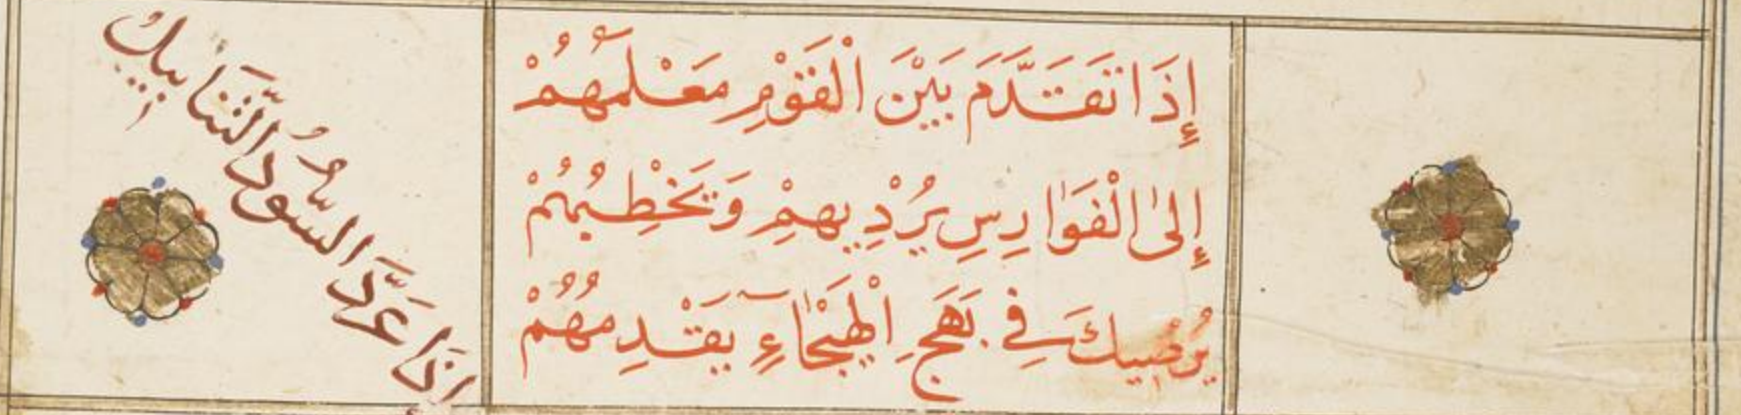 إِذَا تَقَدَّمَ بَيْنَ الْقَوْمِ مَعْلَمُهُمْ
إِلَى الْفَوَارِسِ يُرْدِيهِمْ وَيَخْطِمُهُمْ
يُرْضِيكَ فِي نَهَجِ الْهَيْجَاءِ يَقْدِمُهُمْ
إِذَا عَرَّدَ السُّودُ التَّنَابِيلُ